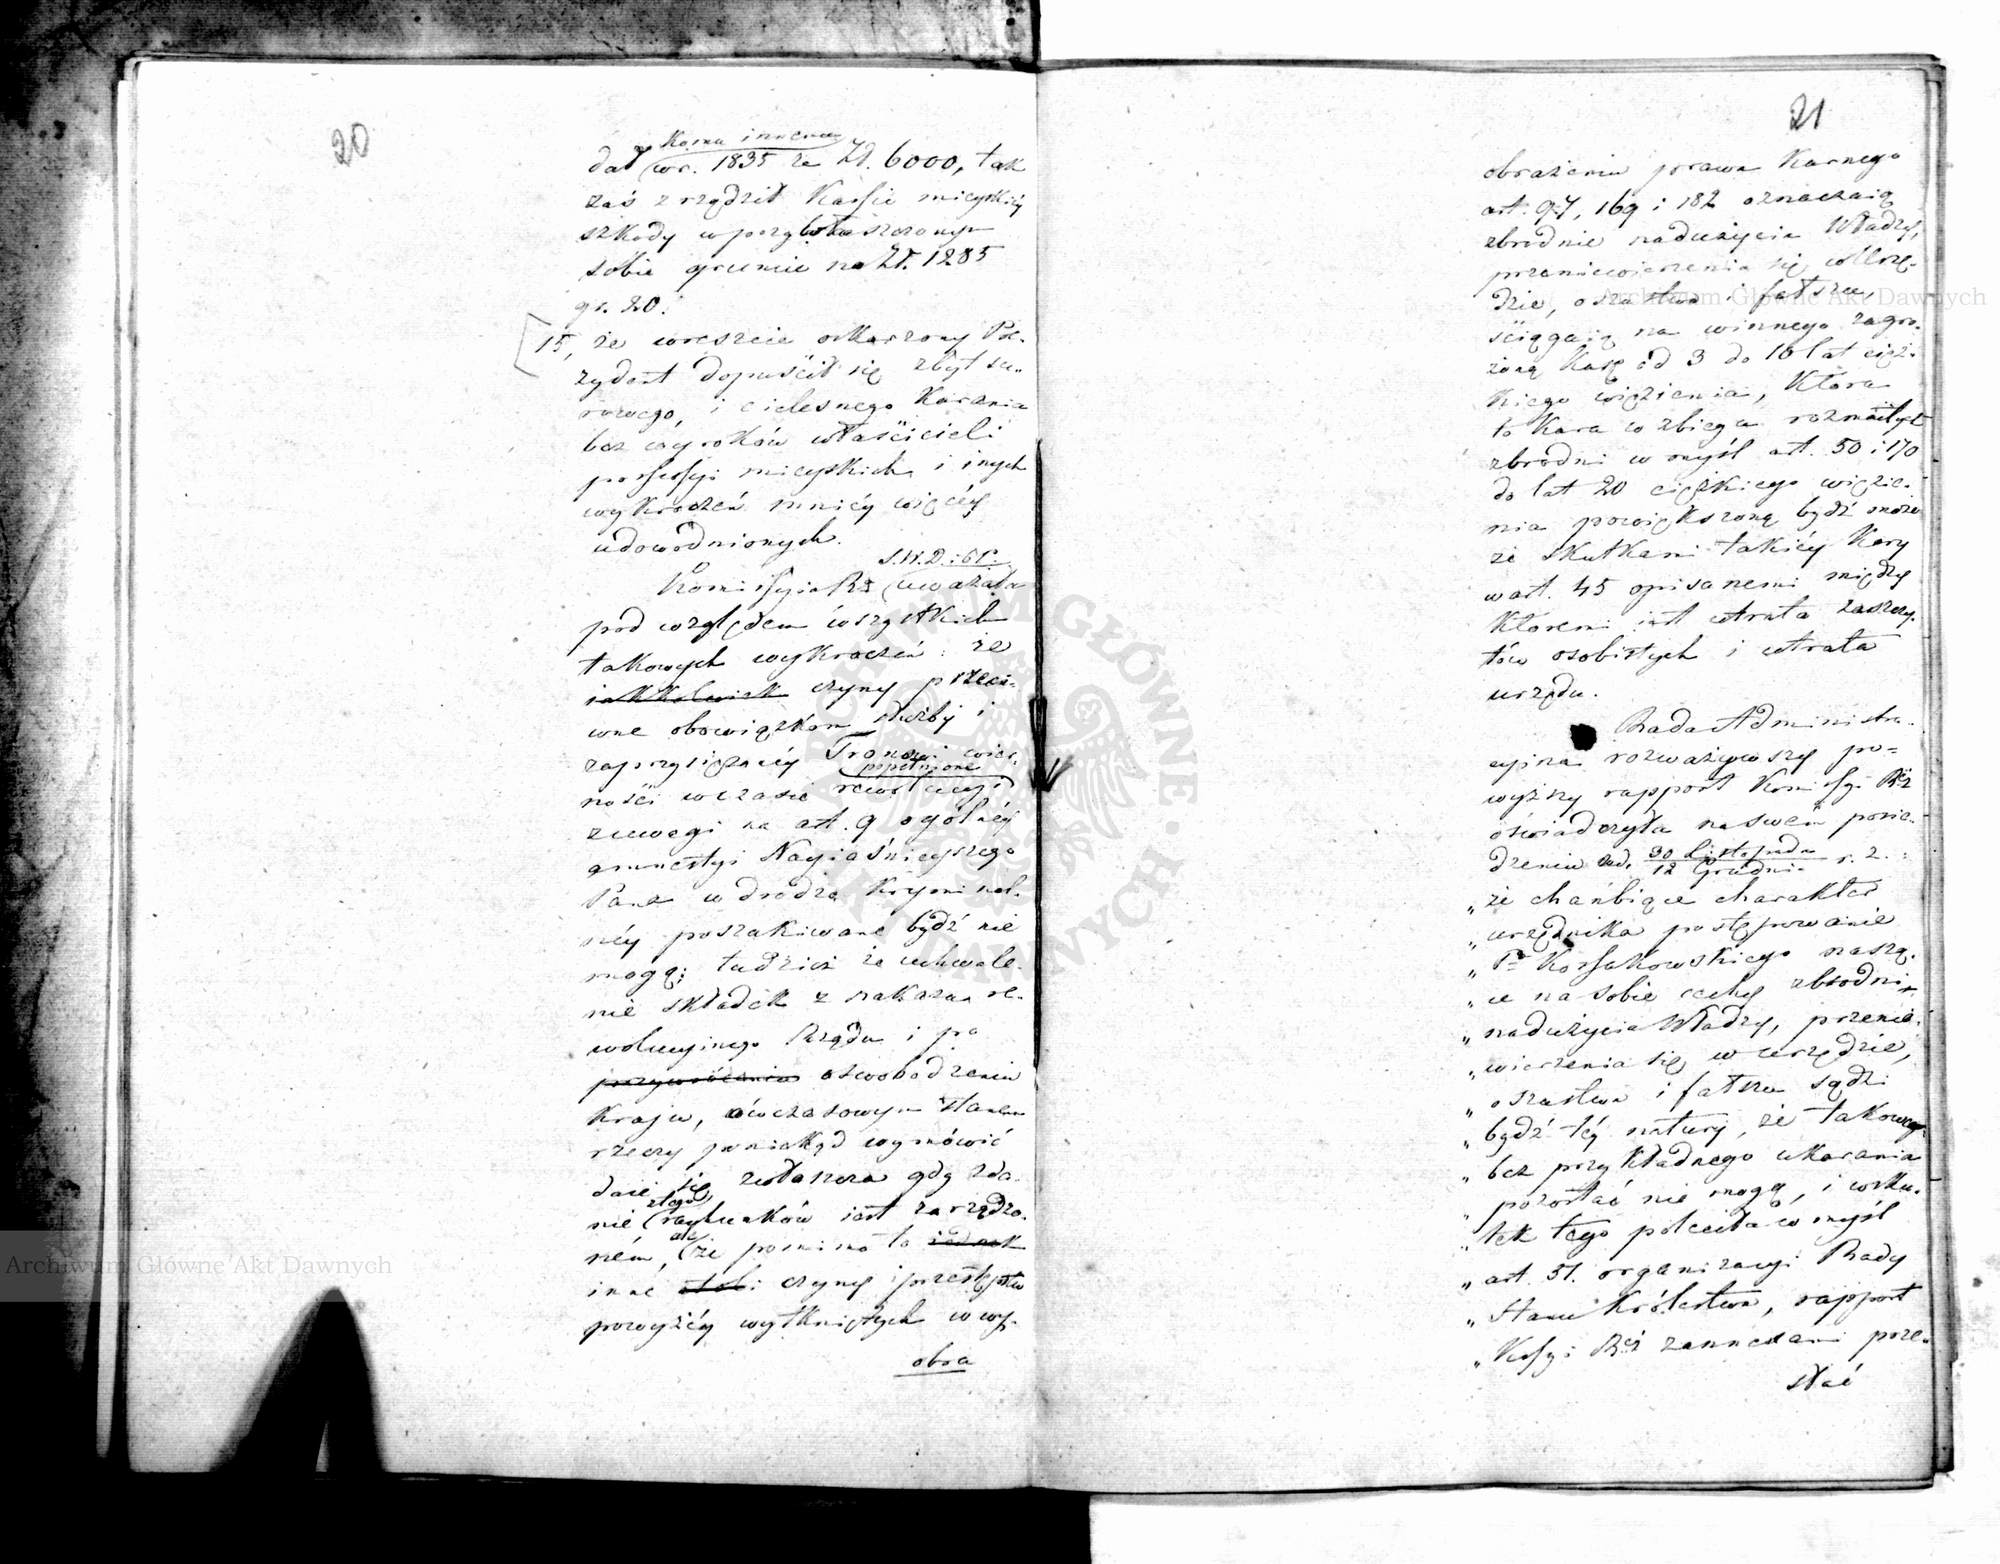 20
komu innemu
dał w r. 1835 za Zł. 6000, tak
zaś zrządził Kassie mieyskiéy
szkody w przywłaszczonym
sobie gruncie na Zł. 1285
gr. 20.
15, że wreszcie oskarzony Pre-
zydent dopuścił się zbyt su-
rowego, i cielesnego karania
bez wyroków właścicieli
possessyi mieyskich i inych
wykroczeń mniéy więcéy
udowodnionych.
S.W.D. i OP.
Kommissyia Rz. uważała
pod względem wszystkich
takowych wykroczeń: że
iakkolwiek czyny przeci-
wne obowiązkom służby i
zaprzysiężonéy Tronowi wier-
popełnione
ności w czasie rewolucyi
z uwagi na art. 9 ogólnéy
amnestyi Nayiaśnieyszego
Pana w drodze kryminal-
néy poszukiwane bydź nie
mogą; tudzież że uchwale-
nie składek z nakazu re-
wolucyinego Rządu i po
przywróceniu oswobodzeniu
Kraju, ówczasowym stanem
rzeczy poniekąd wymówić
daie się, zwłaszcza gdy zda-
nie z tego rachunków iest zarządzo-
ném, ale że pomimo to iednak
inne czyny i przestępstw
powyżéy wytkniętych w wy-
obra
21
obrażeniu prawa Karnego
art. 97, 169 i 182 oznaczaią
zbrodnie nadużycia Władzy,
przeniewierzenia się w Urzę-
dzie, oszustwa i fałszu,
ściągaią na winnego zagro-
żoną karę od 3 do 10 lat cięż-
kiego więzienia, która
to kara w zbiegu rozmaitych
zbrodni w myśl art. 50 i 170
do lat 20 ciężkiego więzie-
nia powiększoną bydź może
ze skutkami takiéy kary
w art. 45 opisanemi między
któremi iest utrata zaszczy-
tów osobistych i utrata
urzędu.
Rada Administra-
cyina rozważywszy po-
wyższy rapport Kommissyi Rz.
oświadczyła na swem posie-
dzeniu w d. 30 Listopada / 12 Grudnia r. z.:
„ że chańbiące charakter
„ urzędnika postępowanie
„ Pa Korsakowskiego noszą-
„ ce na sobie cechy zbrodni
„ nadużycia Władzy, przenie-
„ wierzenia się w urzędzie,
„ oszustwa i fałszu sądzi
„ bydź téy natury, że takowe
„ bez przykładnego ukarania
„ pozostać nie mogą, i w sku-
„ tek tego poleciła w myśl
„ art. 31. organizacyi Rady
„ Stanu Królestwa, rapport
„ Kssyi Rz. z annexami prze-
słać
Archiwum Główne Akt Dawnych
Archiwum Główne Akt Dawnych
ARCHIWUM GŁÓWNE AKT DAWNYCH